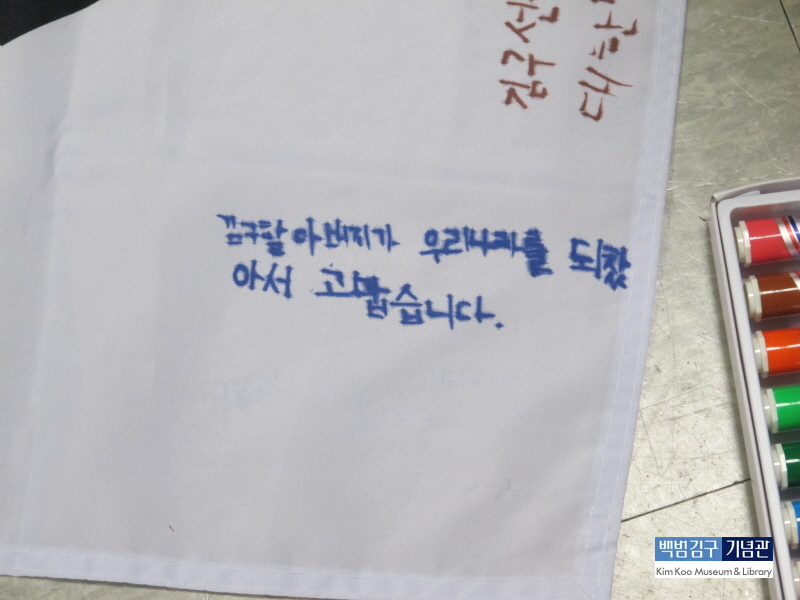 김구
대하
김구할아버지가 우리나라를 되찾
아서 고맙습니다.
백범김구 기념관
Kim Koo Museum & Library